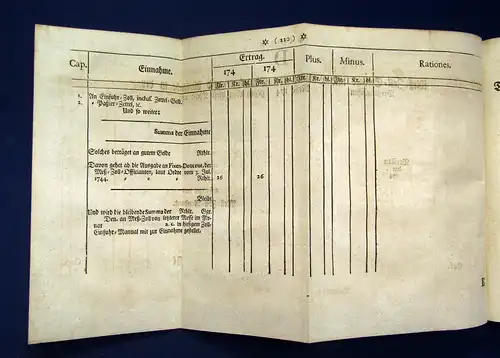 ✡ ( 210 ) ✡
Cap. Einnahme. Ertrag. Plus. Minus. Rationes.
174 174
Rtr. Kr. hl. Rtr. Kr. hl. Rtr. Kr. hl. Rtr. Kr. hl.
1. An Einfuhr-Zoll, inclus. Zettel-Geld.
2. Paßier-Zettel, ꝛc.
Und so weiter:
Summa der Einnahme
Solches beträget an gutem Gelde Rthlr.
Davon gehet ab die Ausgabe an Fixen-Douceurs, der
Meß-Zoll-Officianten, laut Ordre vom 3. Jul.
1744. Rthlr. 26 26
Bleibt
Und wird die bleibende Summa der Rthlr. Ggr.
Den. an Meß-Zoll von letzterer Messe im Mo-
nat a. c. in hiesigem Zoll-
Einfuhr-Manual mit zur Einnahme gestellet.